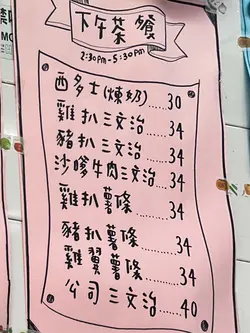 下午茶餐
2:30pm-5:30pm
西多士(煉奶)......30
雞扒三文治......34
豬扒三文治......34
沙嗲牛肉三文治....34
雞扒薯條..........34
豬扒薯條..........34
雞翼薯條..........34
公司三文治......40